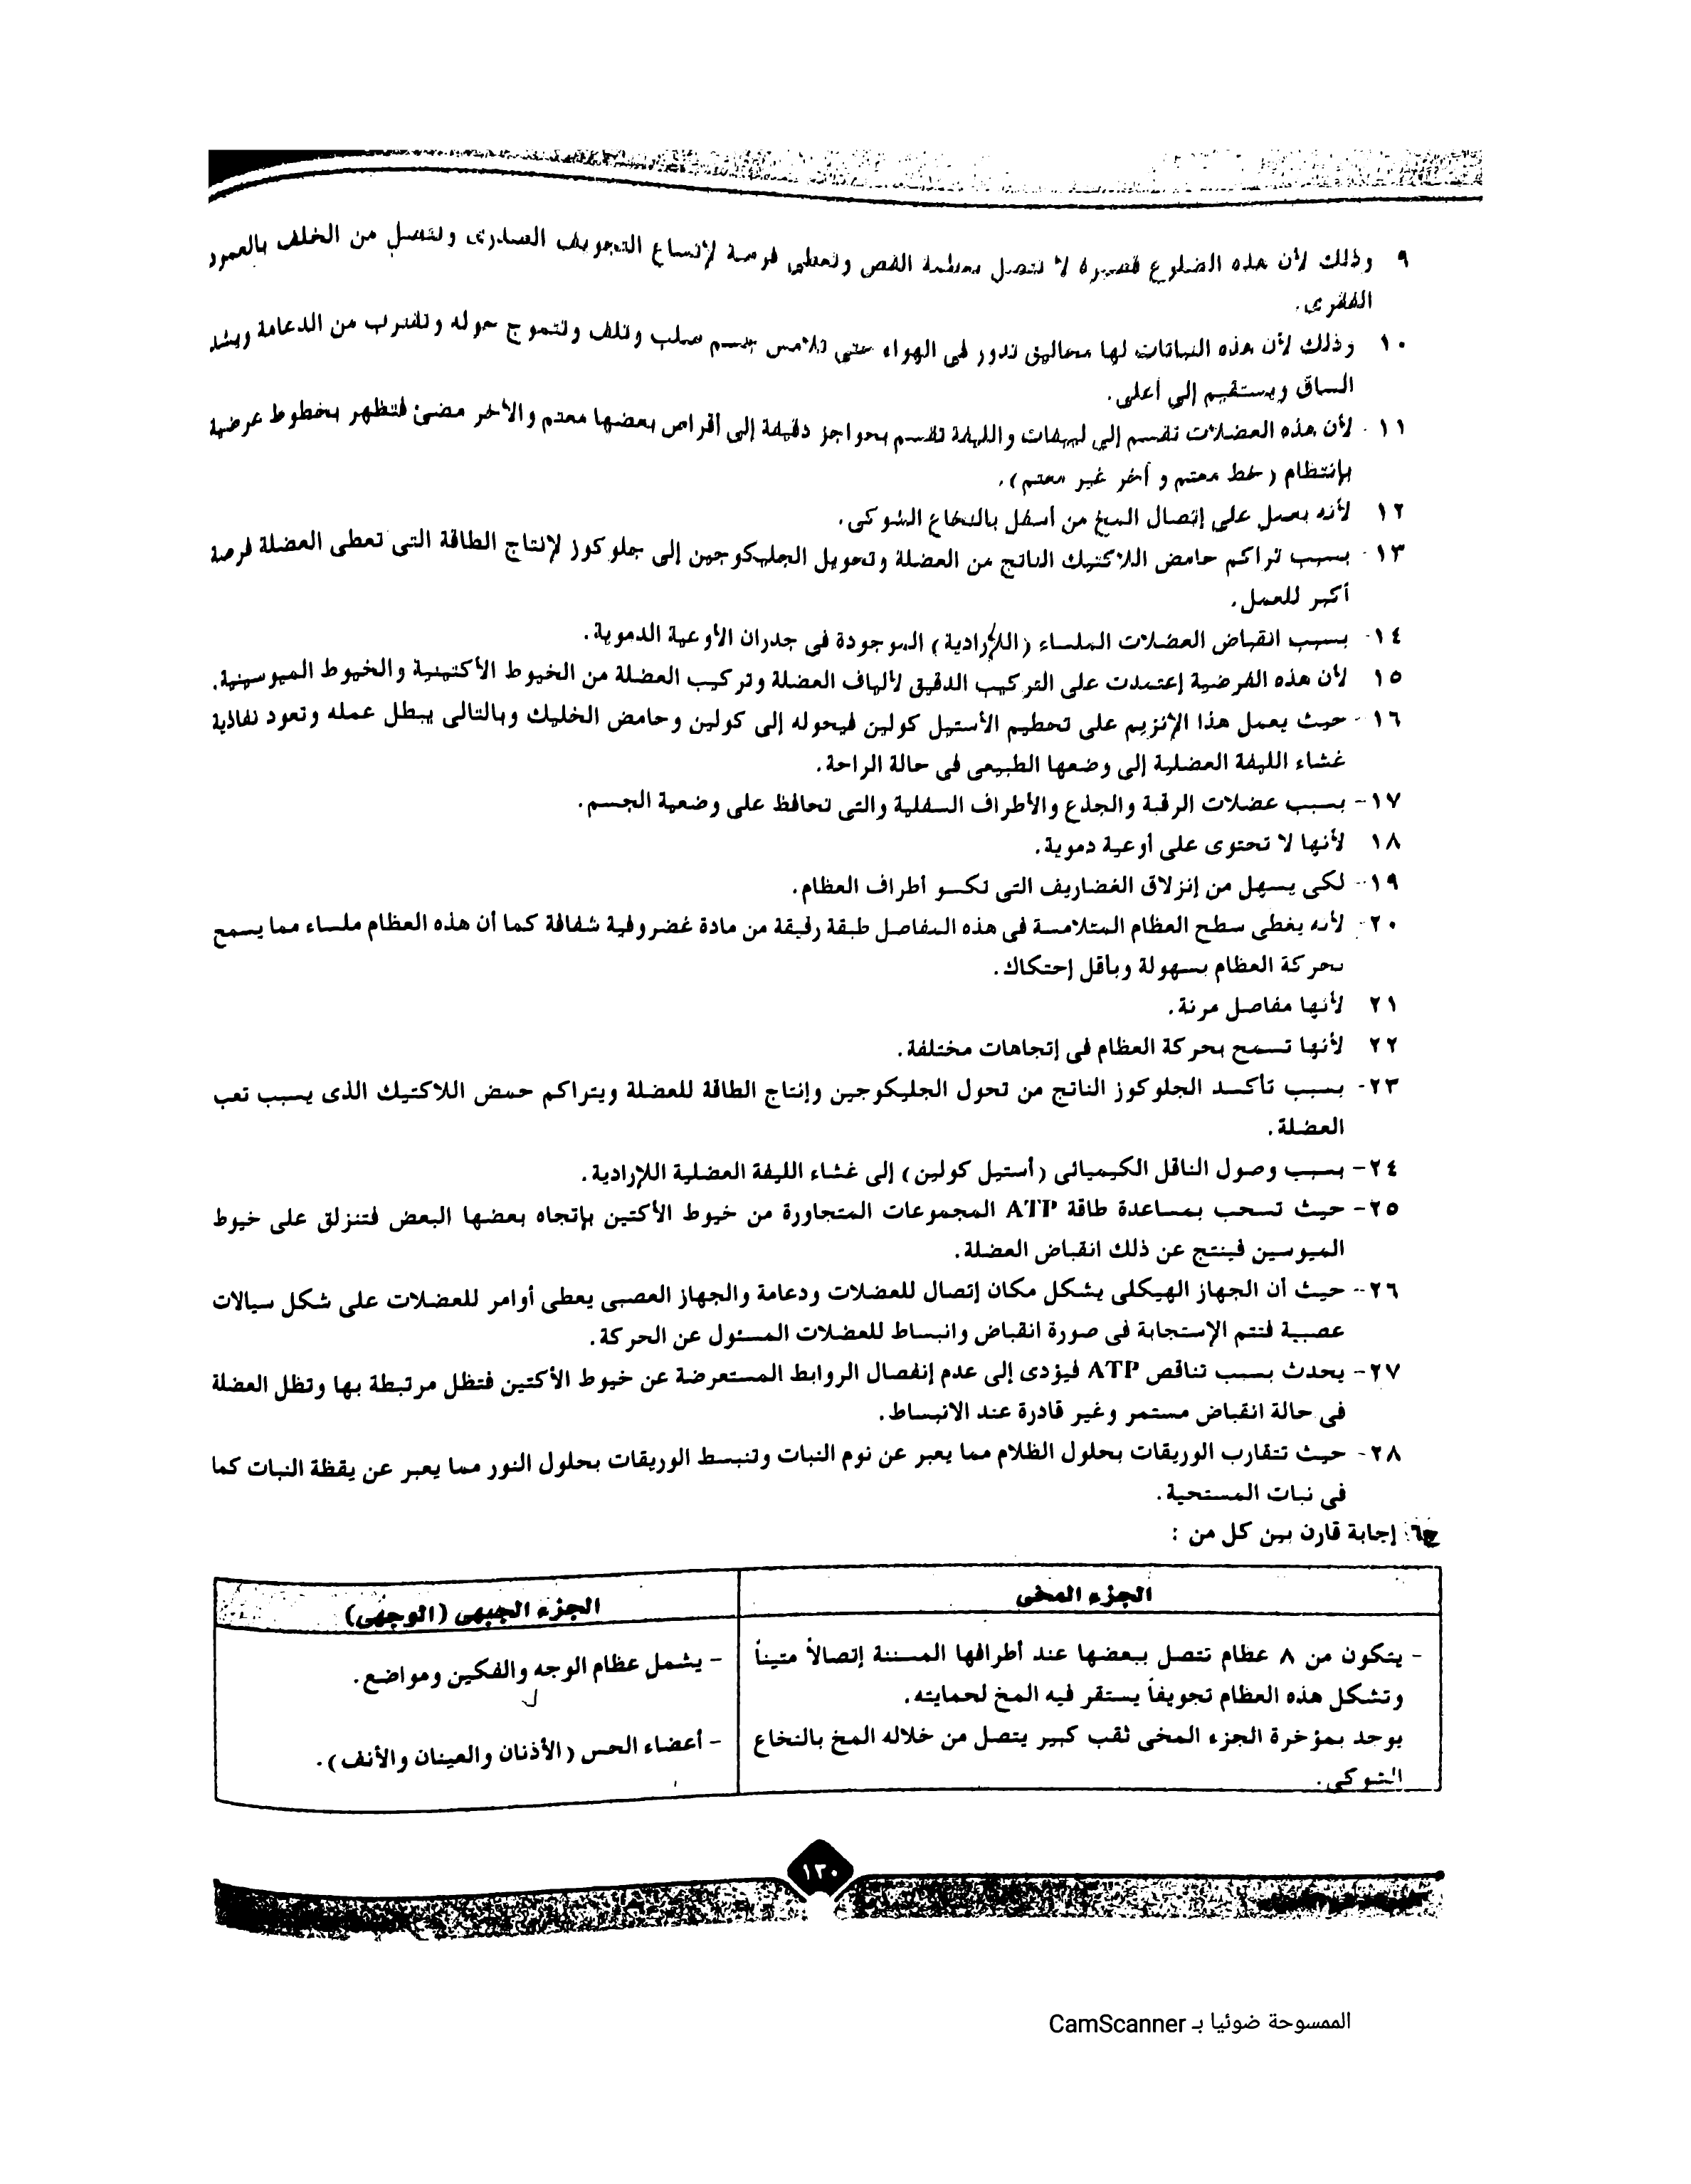 ٩ وذلك لأن هذه الضلوع قصيرة لا تتصل بعظمة القص وتعطى فرصة لإتساع التجويف الصدرى وتتصل من الخلف بالعمود
الفقرى.
١٠ وذلك لأن هذه النباتات لها محاليق تدور فى الهواء حتى تلامس جسم صلب وتلف وتتموج حوله وتقترب من الدعامة ويشد
الساق ويستقيم إلى أعلى.
١١- لأن هذه العضلات تقسم إلى ليفات والليفة تقسم بحواجز دقيقة إلى أقراص بعضها معتم والأخر مضئ فتظهر بخطوط عرضية
بإنتظام (خط معتم و أخر غير معتم).
١٢ لأنه يعمل على إتصال المخ من أسفل بالنخاع الشوكى.
١٣- بسبب تراكم حامض اللاكتيك الناتج من العضلة وتحويل الجليكوجين إلى جلوكوز لإنتاج الطاقة التى تعطى العضلة فرصة
أكبر للعمل.
١٤- بسبب انقباض العضلات الملساء (اللاإرادية) الموجودة فى جدران الأوعية الدموية.
١٥ لأن هذه الفرضية إعتمدت على التركيب الدقيق لألياف العضلة وتركيب العضلة من الخيوط الأكتينية والخيوط الميوسينية.
١٦- حيث يعمل هذا الإنزيم على تحطيم الأستيل كولين فيحوله إلى كولين وحامض الخليك وبالتالى يبطل عمله وتعود نفاذية
غشاء الليفة العضلية إلى وضعها الطبيعى فى حالة الراحة.
١٧- بسبب عضلات الرقبة والجذع والأطراف السفلية والتى تحافظ على وضعية الجسم.
١٨ لأنها لا تحتوى على أوعية دموية.
١٩- لكى يسهل من إنزلاق الغضاريف التى تكسو أطراف العظام.
٢٠- لأنه يغطى سطح العظام المتلامسة فى هذه المفاصل طبقة رقيقة من مادة غضروفية شفافة كما أن هذه العظام ملساء مما يسمح
بحركة العظام بسهولة وبأقل إحتكاك.
٢١ لأنها مفاصل مرنة.
٢٢ لأنها تسمح بحركة العظام فى إتجاهات مختلفة.
٢٣- بسبب تأكسد الجلوكوز الناتج من تحول الجليكوجين وإنتاج الطاقة للعضلة ويتراكم حمض اللاكتيك الذى يسبب تعب
العضلة.
٢٤- بسبب وصول الناقل الكيميائى (أستيل كولين) إلى غشاء الليفة العضلية اللاإرادية.
٢٥- حيث تسحب بمساعدة طاقة ATP المجموعات المتجاورة من خيوط الأكتين بإتجاه بعضها البعض فتنزلق على خيوط
الميوسين فينتج عن ذلك انقباض العضلة.
٢٦- حيث أن الجهاز الهيكلى يشكل مكان إتصال للعضلات ودعامة والجهاز العصبى يعطى أوامر للعضلات على شكل سيالات
عصبية فتتم الإستجابة فى صورة انقباض وانبساط للعضلات المسئول عن الحركة.
٢٧- يحدث بسبب تناقص ATP فيؤدى إلى عدم إنفصال الروابط المستعرضة عن خيوط الأكتين فتظل مرتبطة بها وتظل العضلة
فى حالة انقباض مستمر وغير قادرة عند الانبساط.
٢٨- حيث تتقارب الوريقات بحلول الظلام مما يعبر عن نوم النبات وتنبسط الوريقات بحلول النور مما يعبر عن يقظة النبات كما
فى نبات المستحية.
ج٦: إجابة قارن بين كل من :
الجزء المخى
- يتكون من ٨ عظام تتصل ببعضها عند أطرافها المسننة إتصالاً متيناً
وتشكل هذه العظام تجويفاً يستقر فيه المخ لحمايته.
يوجد بمؤخرة الجزء المخى ثقب كبير يتصل من خلاله المخ بالنخاع
الشوكى.
الجزء الجبهى (الوجهى)
- يشمل عظام الوجه والفكين ومواضع.
- أعضاء الحس (الأذنان والعينان والأنف).
١٣٠
الممسوحة ضوئيا بـ CamScanner